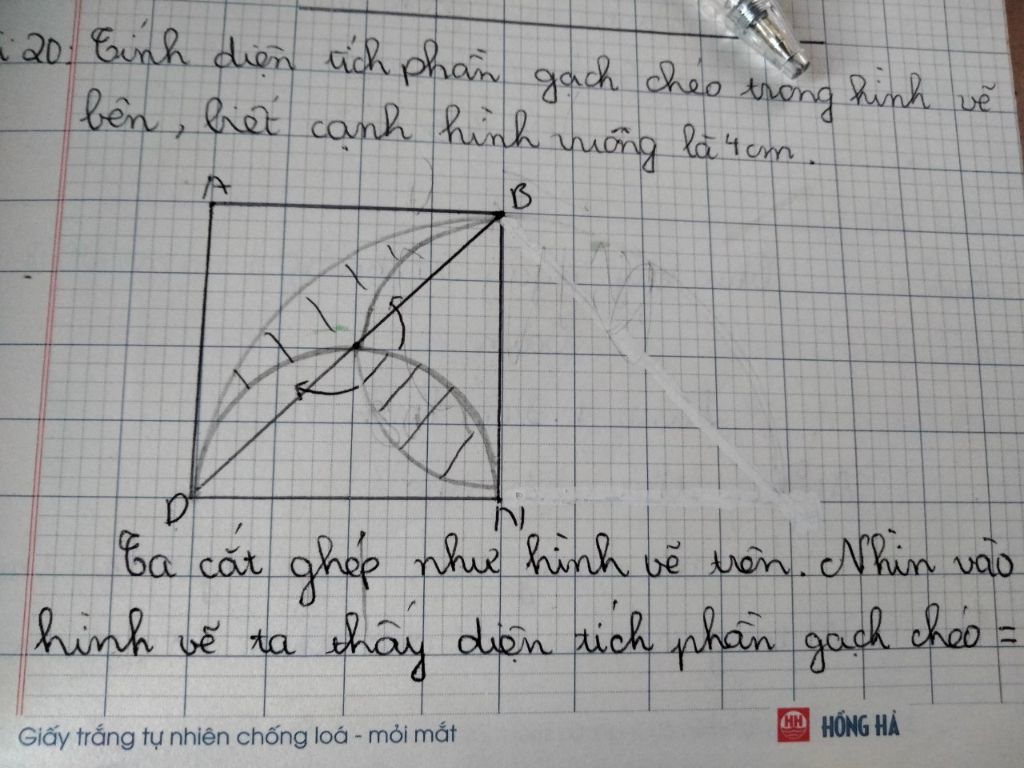 20. Tính diện tích phần gạch chéo trong hình vẽ
bên, biết cạnh hình vuông là 4cm.
A
B
D
Ta cắt ghép như hình vẽ trên. Nhìn vào
hình vẽ ta thấy diện tích phần gạch chéo =
Giấy trắng tự nhiên chống loá - mỏi mắt
HH HỒNG HÀ